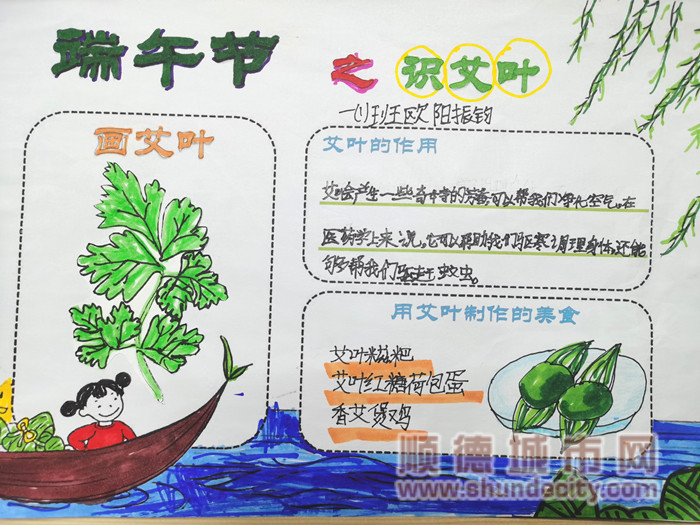 端午节 之 识艾叶
一(1)班 欧阳振钧
画艾叶
艾叶的作用
艾会产生一些奇特的芳香可以帮我们净化空气。在
医药学上来说,它可以帮助我们驱寒调理身体,还能
够帮我们驱赶蚊虫。
用艾叶制作的美食
艾叶糍粑
艾叶红糖荷包蛋
香艾煲鸡
顺德城市网
www.shundecity.com